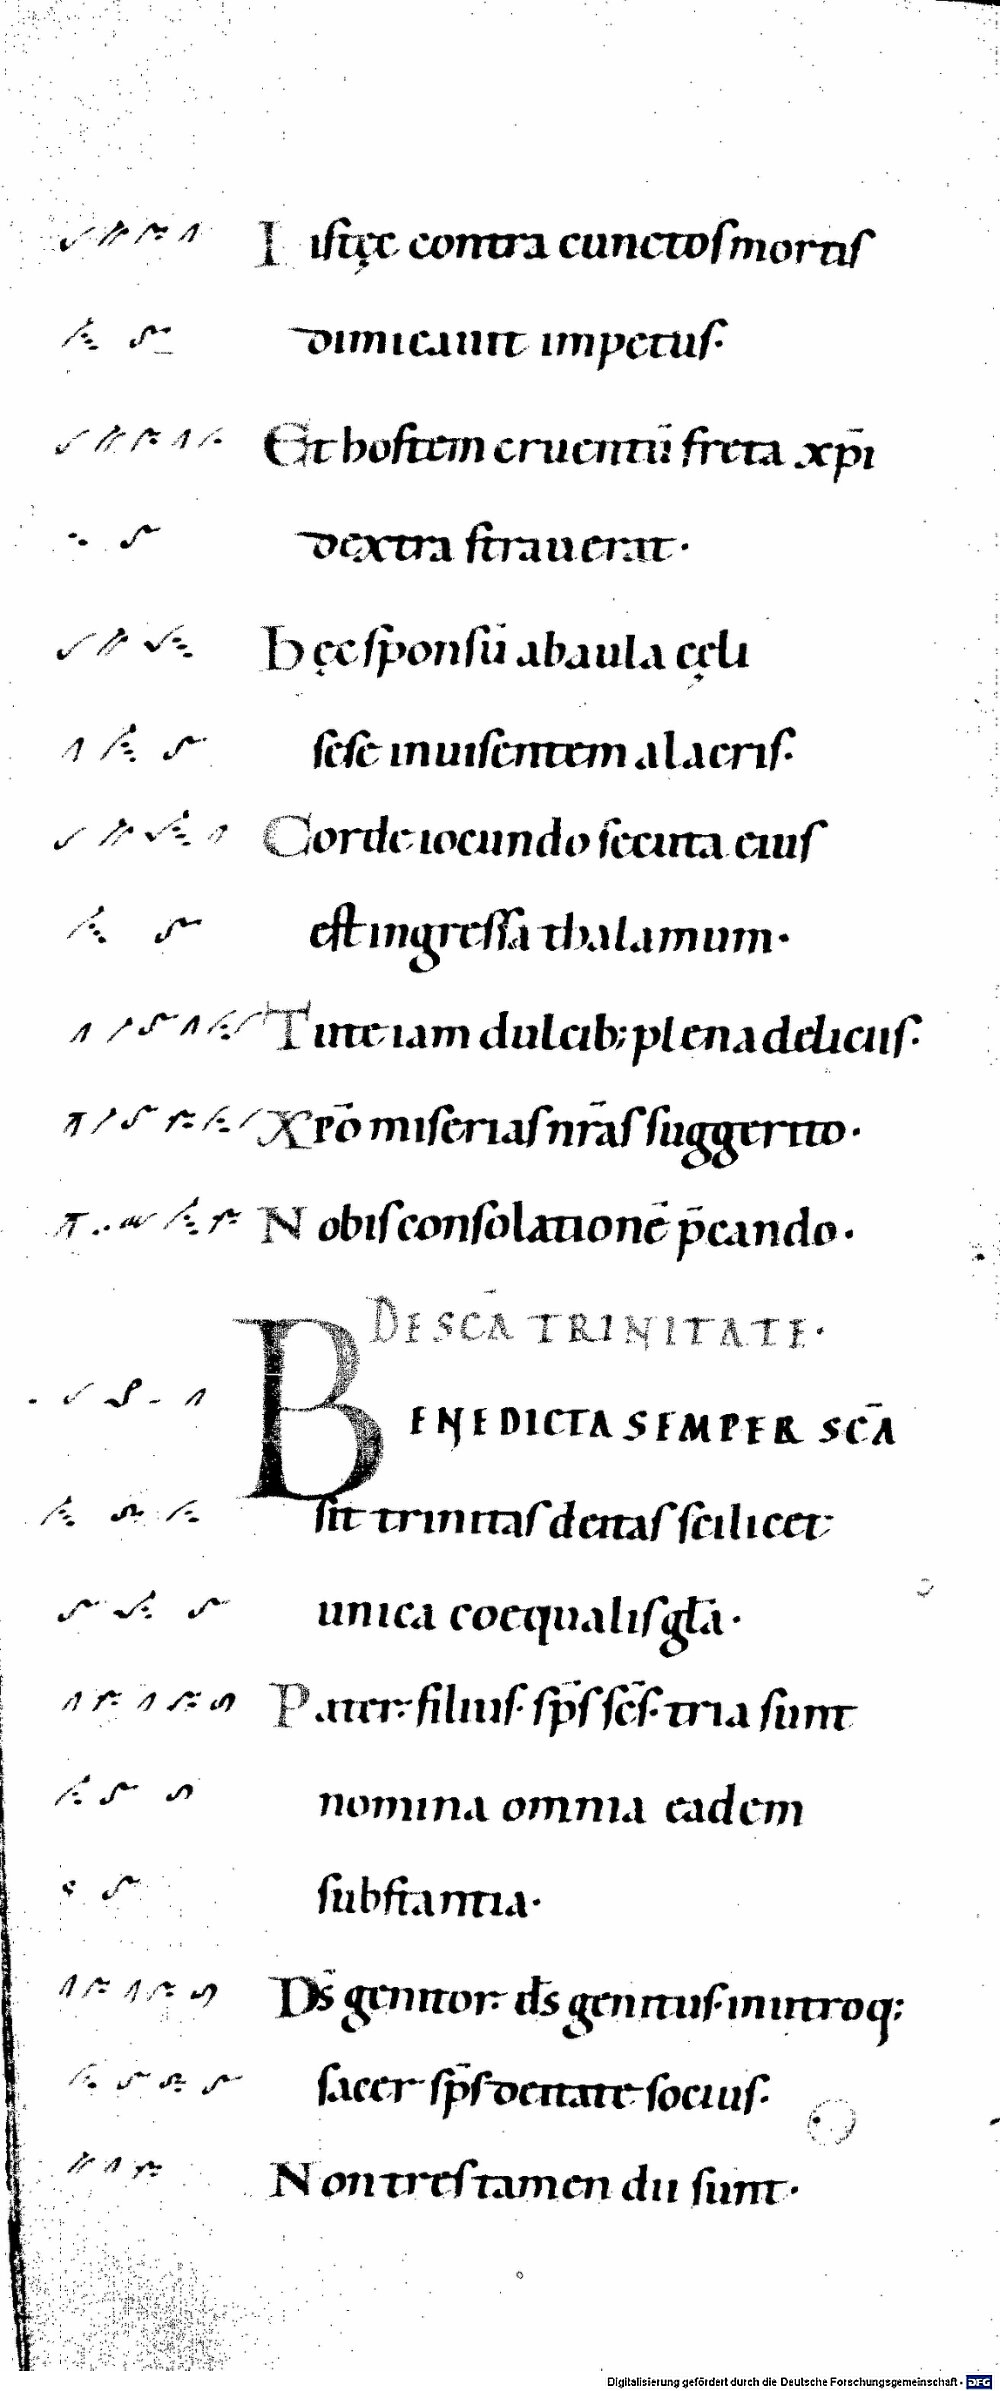 I istęc contra cunctos mortis
dimicauit impetus·
Et hostem cruentū freta xp̄i
dextra strauerat·
Hęc sponsū ab aula cęli
sese inuisentem alacris·
Corde iocundo secuta eius
est ingressa thalamum·
Tu te iam dulcib; plena deliciis·
Xp̄o miserias nr̄as suggerito·
Nobis consolationē p̄cando·
DE SCĀ TRINITATE·
BENEDICTA SEMPER SCĀ
sit trinitas deitas scilicet
unica coequalis gl̄a·
Pater· filius· sp̄s sc̄s· tria sunt
nomina omnia eadem
substantia·
Ds̄ genitor· ds̄ genitus· in utroq;
sacer sp̄s deitate socius·
Non tres tamen dii sunt·
Digitalisierung gefördert durch die Deutsche Forschungsgemeinschaft - DFG